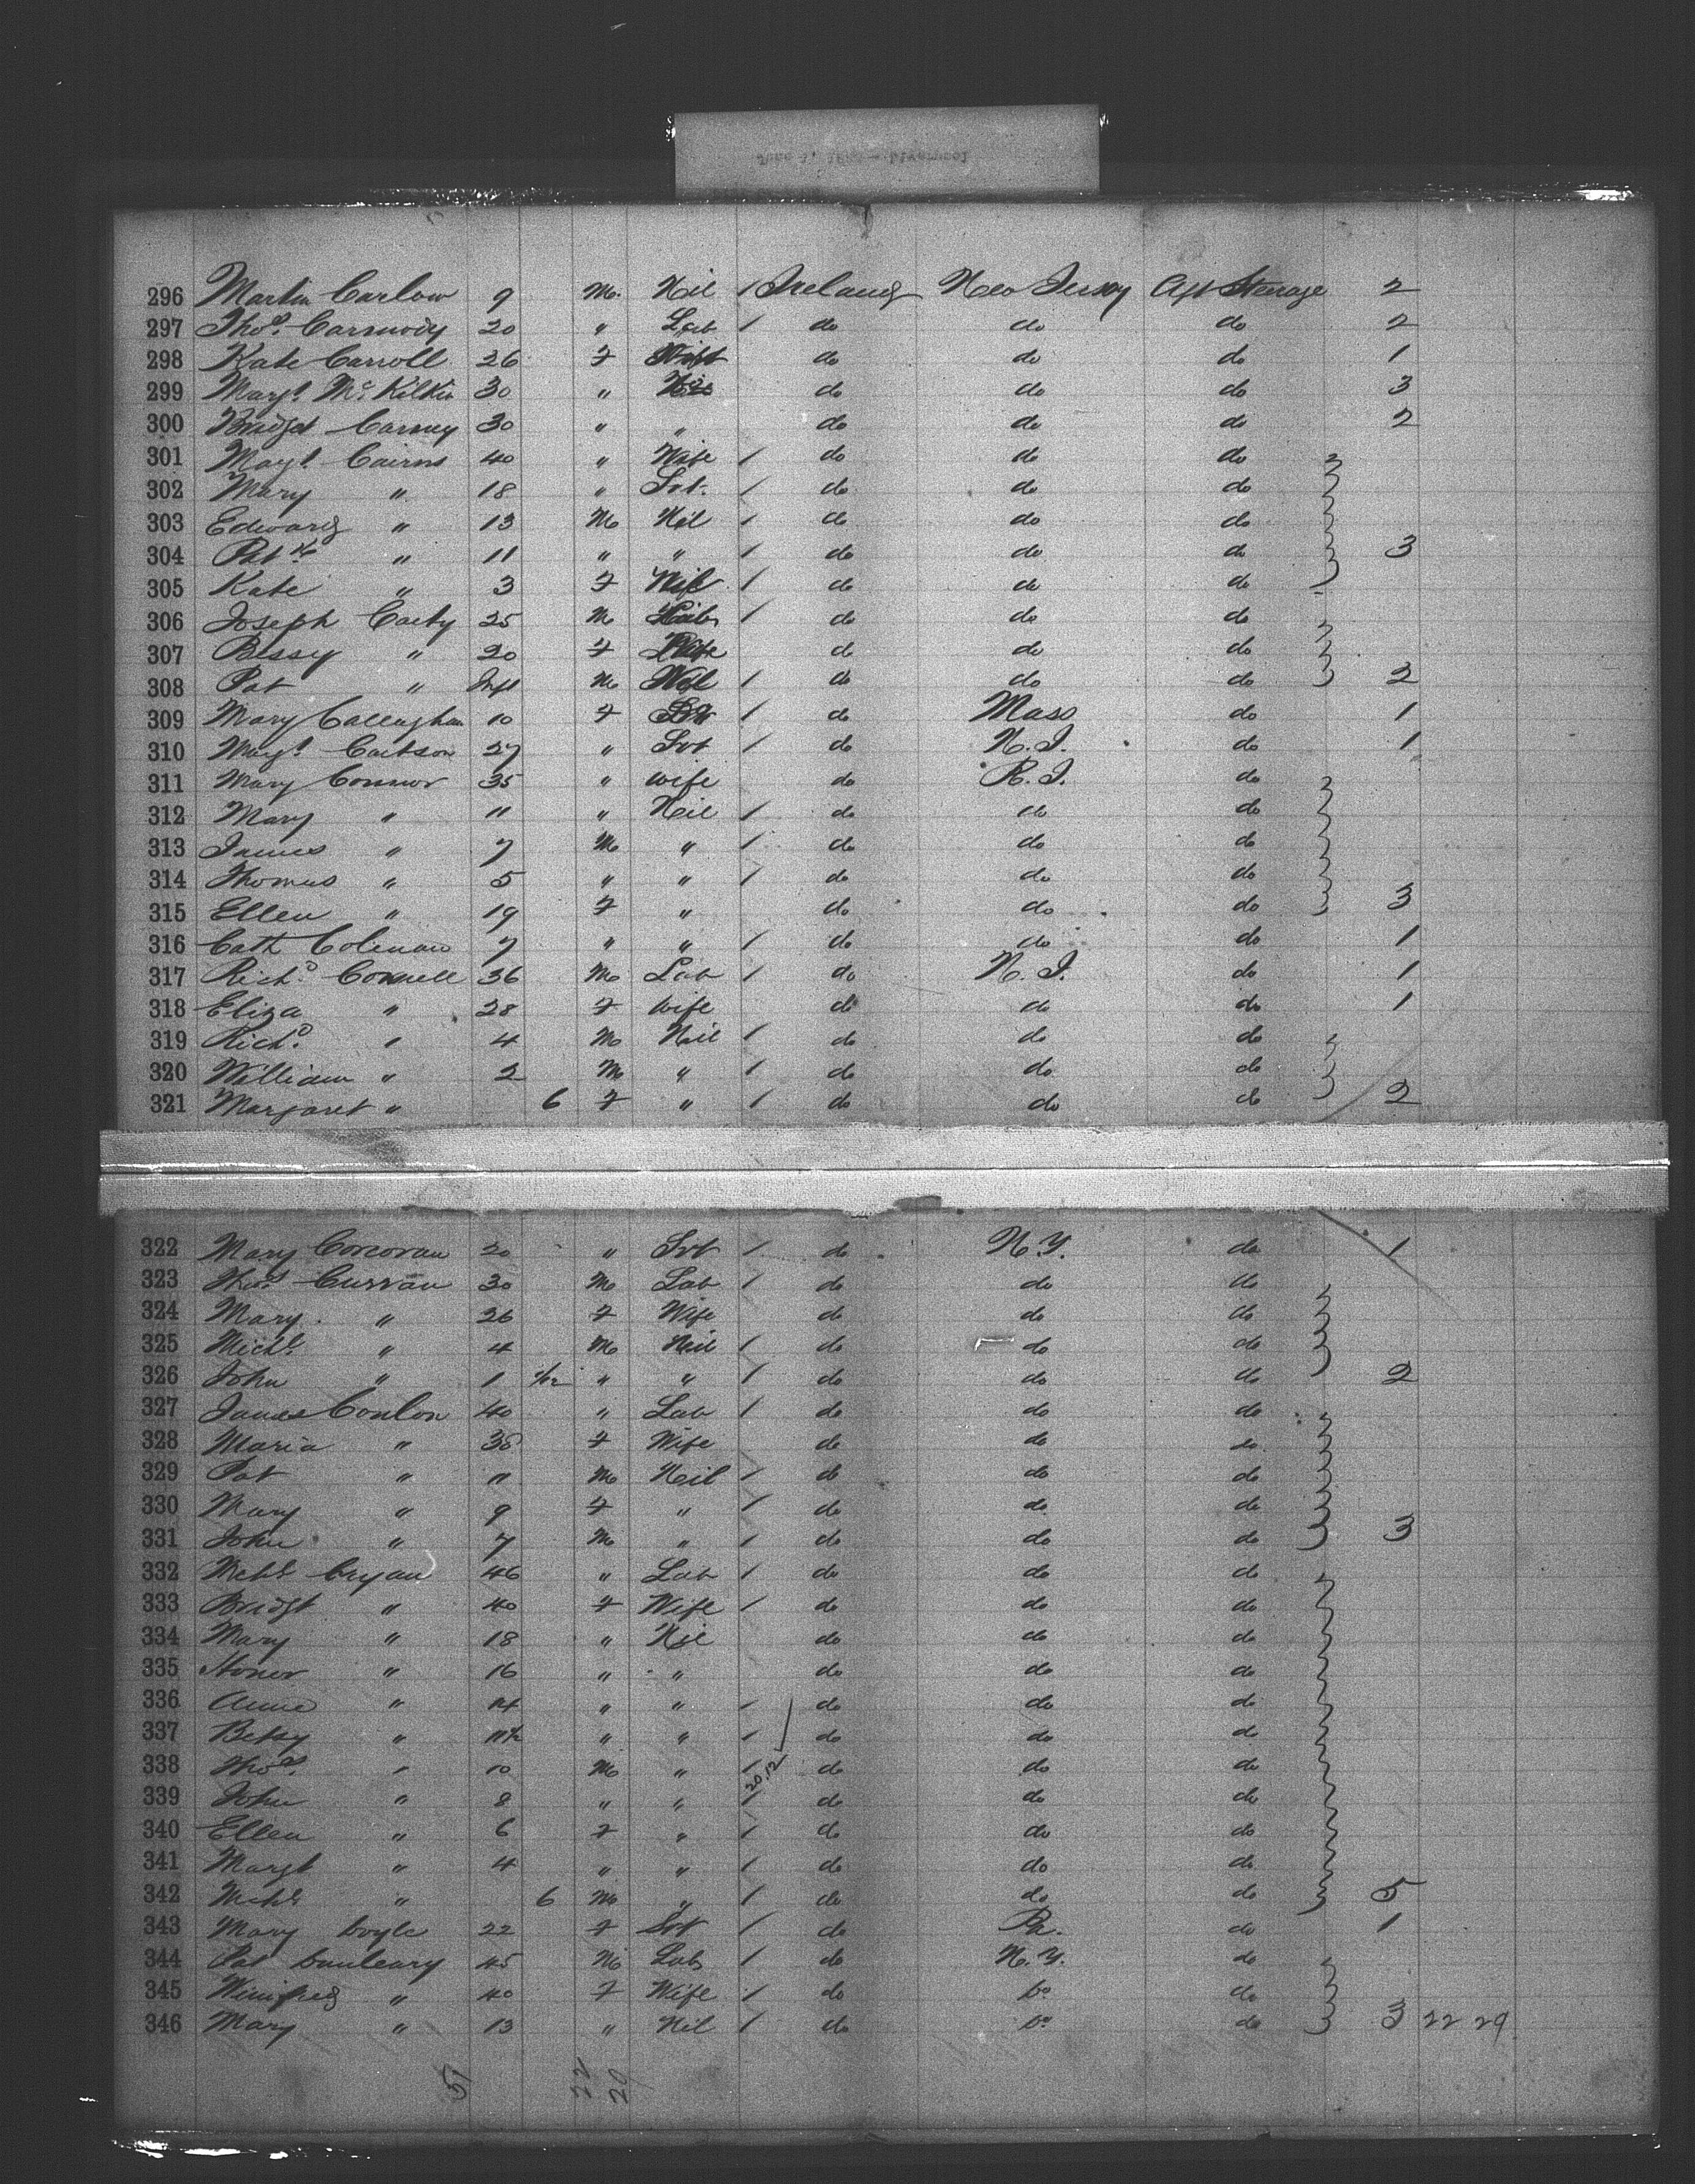 296 Martin Carlow 9 M. Nil 1 Ireland New Jersey Aft Steerage 2
297 Thos. Carmody 20 " Lab 1 do do do 2
298 Kate Carroll 26 F do do do 1
299 Magt. McKilkie 30 " do do do 3
300 Bridget Carney 30 " " do do do 2
301 Magt. Cairns 40 " Wife 1 do do do
302 Mary " 18 " Svt. 1 do do do
303 Edward " 13 M Nil 1 do do do
304 Patk " 11 " " 1 do do do 3
305 Kate " 3 F Nil 1 do do do
306 Joseph Carty 25 M Lab 1 do do do
307 Bessy " 20 F Wife do do do
308 Pat " Inft M Nil 1 do do do 2
309 Mary Callaghan 10 F 1 do Mass do 1
310 Magt. Carbson 27 " Svt 1 do N.J. do 1
311 Mary Connor 35 " wife do R.I. do
312 Mary " 11 " Neil 1 do do do
313 James " 7 M " 1 do do do
314 Thomas " 5 " " 1 do do do
315 Ellen " 19 F " do do do 3
316 Cath Coleman 7 " " 1 do do do 1
317 Richd. Connell 36 M Lab 1 do N.J. do 1
318 Eliza " 28 F wife do do do 1
319 Richd. " 4 M Neil 1 do do do
320 William " 2 M " 1 do do do
321 Margaret " 6 F " 1 do do do 2
322 Mary Corcoran 20 " Svt 1 do N.Y. do 1
323 Thos. Curran 30 M Lab 1 do do do
324 Mary " 26 F Wife do do do
325 Michl " 4 M Neil 1 do do do
326 John " 1 " " 1 do do do 2
327 James Conlon 40 " Lab 1 do do do
328 Maria " 38 F Wife do do do
329 Pat " 11 M Neil 1 do do do
330 Mary " 9 F " 1 do do do
331 John " 7 M " 1 do do do 3
332 Michl Cryan 46 " Lab 1 do do do
333 Bridgt " 40 F Wife 1 do do do
334 Mary " 18 " Nil do do do
335 Honor " 16 " " do do do
336 Anne " 14 " " 1 do do do
337 Betsy " 11½ " " 1 do do do
338 Thos. " 10 M " 1 do do do
20.12
339 John " 8 " " 1 do do do
340 Ellen " 6 F " 1 do do do
341 Margt " 4 " " 1 do do do
342 Michl " 6 M " 1 do do do 5
343 Mary Doyle 22 F Svt 1 do Pa. do 1
344 Pat Dunleary 45 M Lab 1 do N.Y. do
345 Winifred " 40 F Wife 1 do Do do
346 Mary " 13 " Nil 1 do Do do 3 22 29
51 22 29